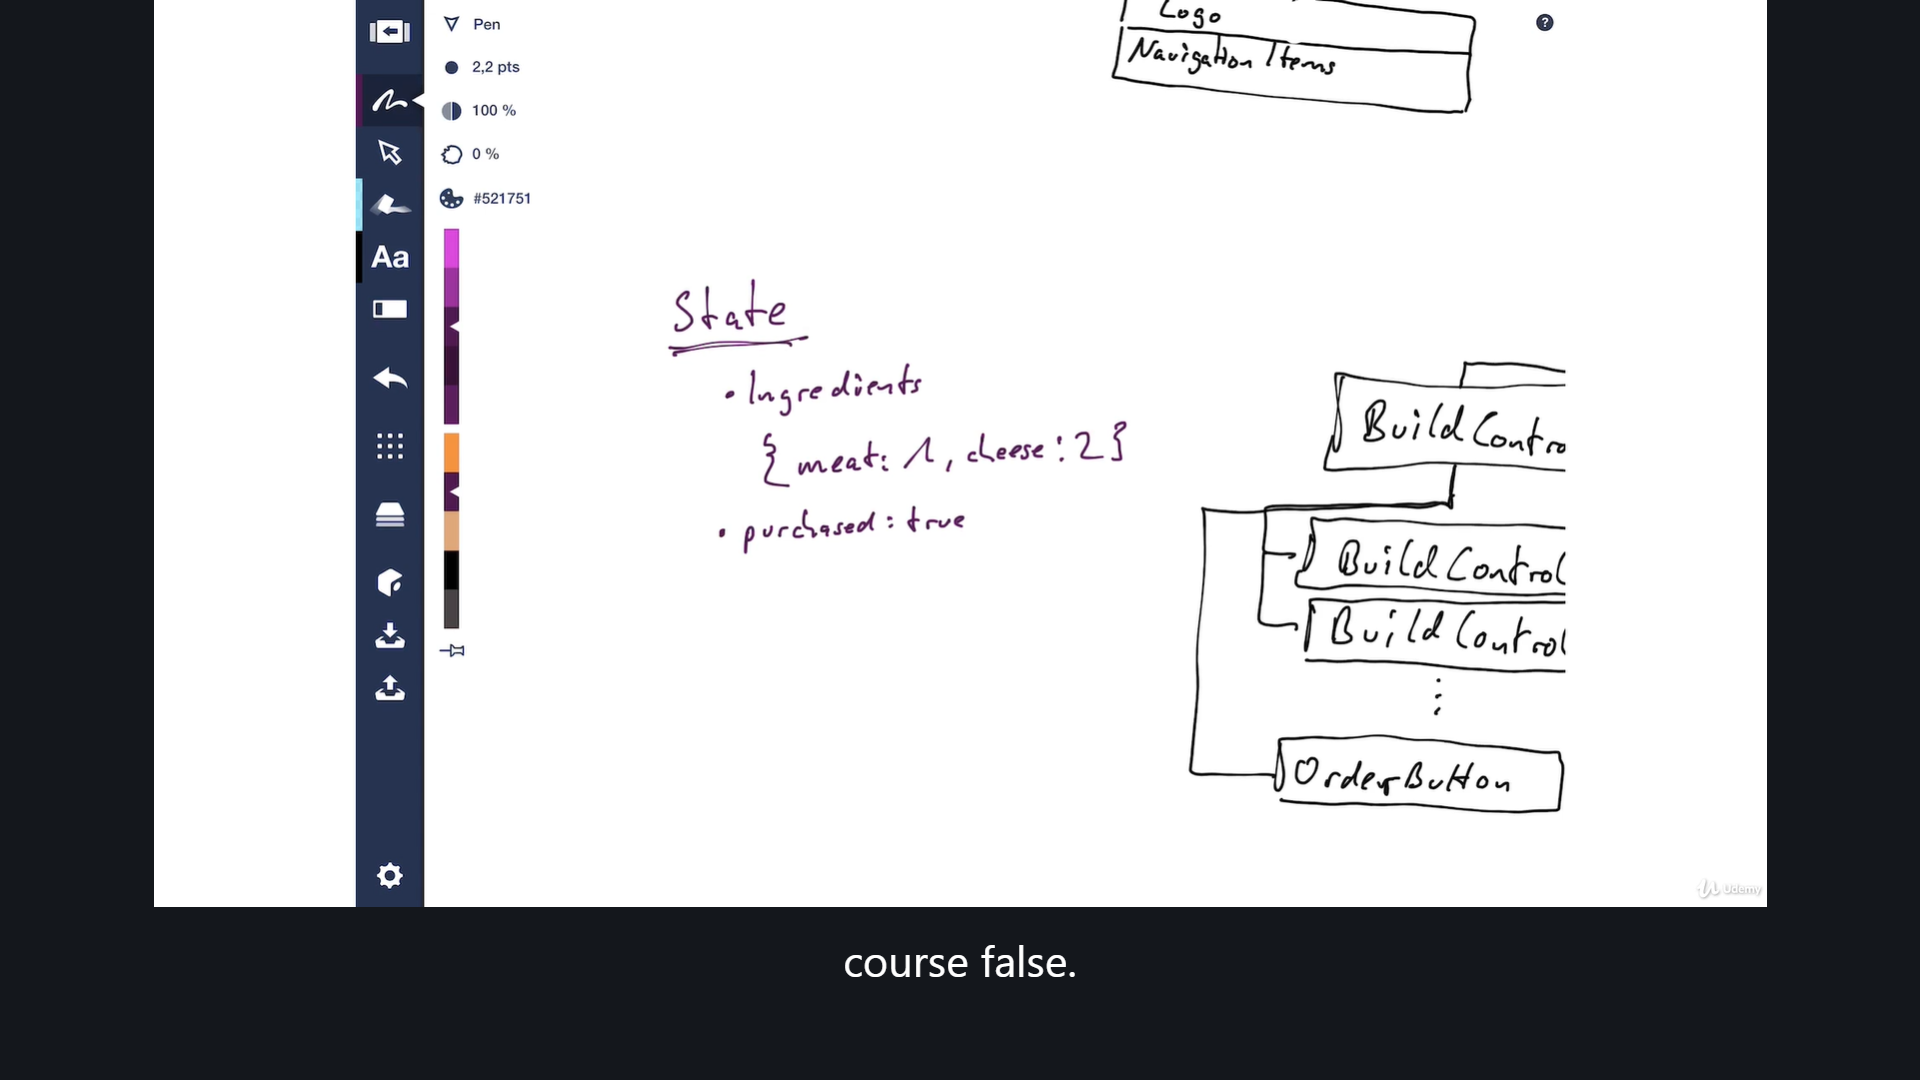 Pen
2,2 pts
100 %
0 %
#521751
Aa
?
Logo
Navigation Items
State
• Ingredients
{ meat: 1, cheese: 2 }
• purchased: true
Build Contro
Build Control
Build Control
OrderButton
Udemy
course false.